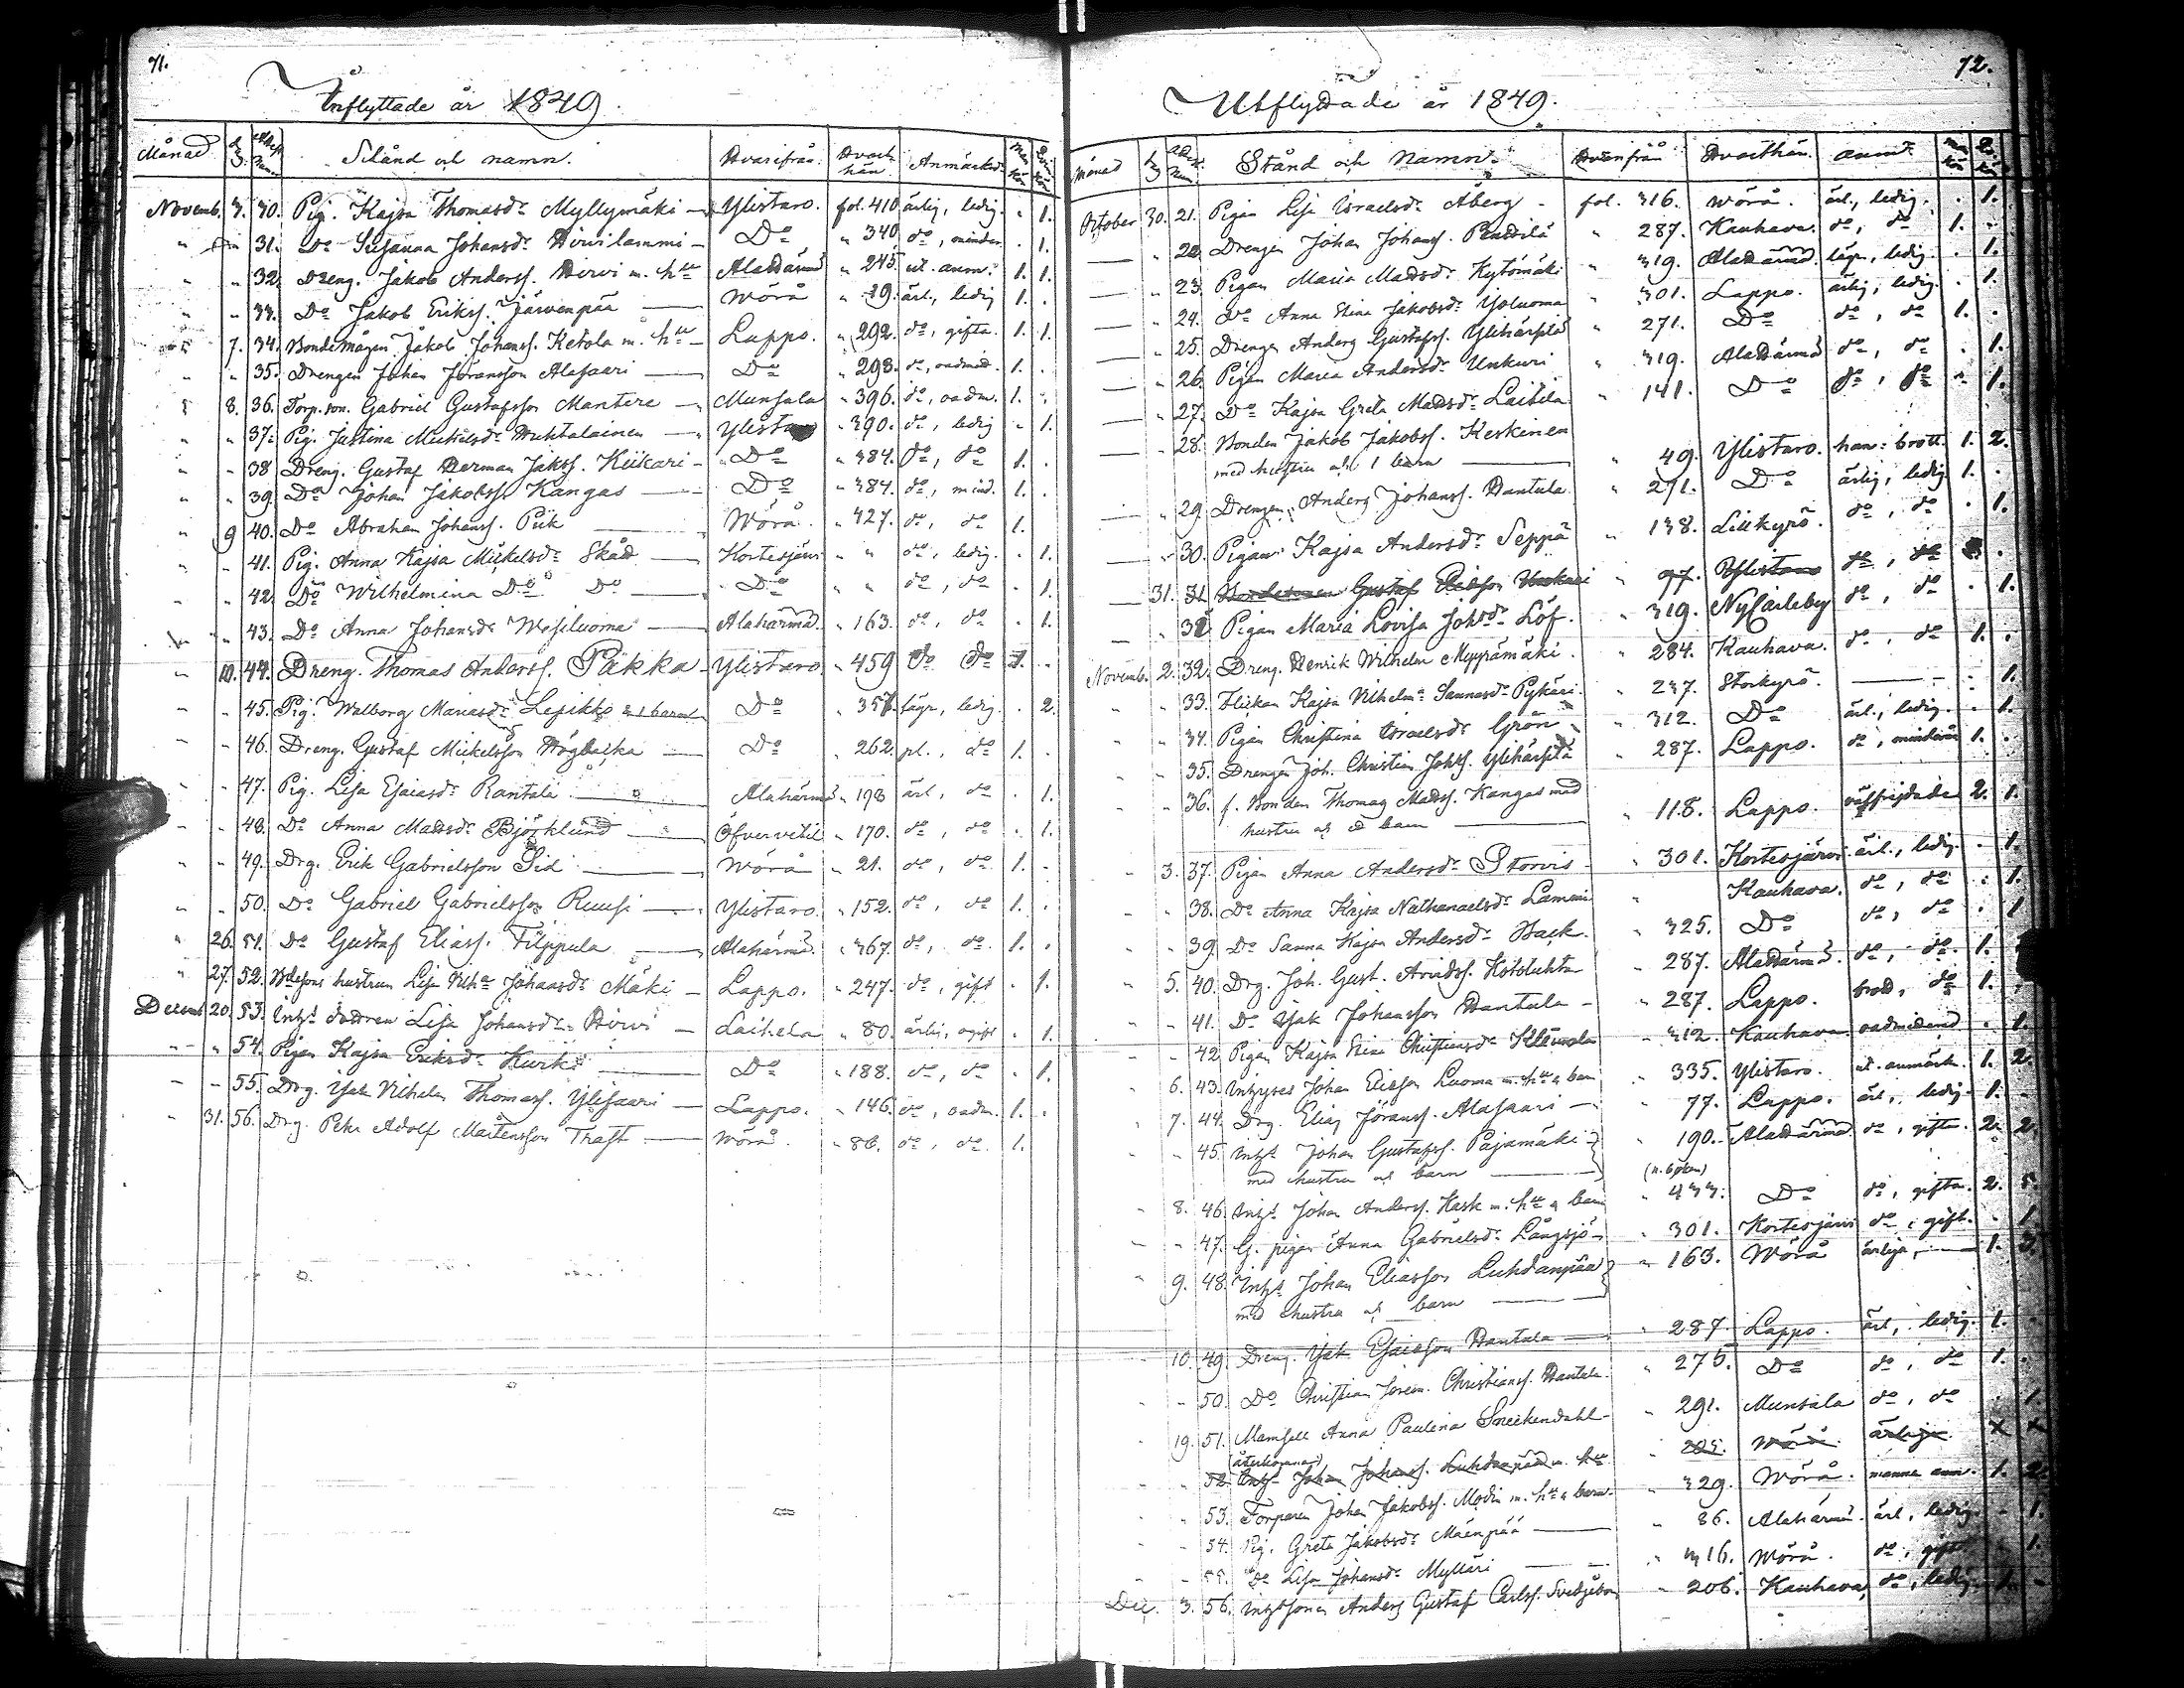 71.
Inflyttade år 1849.
Månad Stånd och namn. Hvarifrån. Hvart hän Anmärkn.
Novemb. 3. 30. Pig. Kajsa Thomasdr Myllymäki - Ylistaro. fol. 410 ärlig, ledig. - 1.
" 31. Do Susanna Johansdr Hirvilammi - Do " 340 do, minder. - 1.
" " 32. Dreng. Jakob Anderss. Hirvi m. htru Alahärmä " 245. ut. anm. 1. 1.
" " 33. Do Jakob Erikss. Järvenpää Wörå " 19. ärl., ledig 1. .
7. 34. Bondemågen Jakob Johanss. Ketola m. htru - Lappo. " 292. do, gifta. 1. 1.
" " 35. Drengen Johan Göransson Alasaari Do " 298. do, oadmit. 1. .
8. 36. Torp. son. Gabriel Gustafsson Mantere Munsala " 396. do, oadm. 1. .
" " 37. Pig. Justina Mickelsdr Huhtalainen - Ylistaro " 390. do, ledig - 1.
" - 38. Dreng. Gustaf Herman Jakss. Kiikari - Do " 384. do, do 1. .
" " 39. Do Johan Jakobss. Kangas Do " 384. do, mind. 1. .
" 9 40. Do Abraham Johanss. Piik Wörå. " 427. do, do 1.
" - 41. Pig. Anna Kajsa Mickelsdr Skåd Kortesjärvi " " do, ledig. . 1.
- - 42. Do Wilhelmina Do Do Do " do, do . 1.
" 43. Do Anna Johansdr Wesiluoma Alahärmä. " 163. do, do . 1.
" 10. 44. Dreng. Thomas Anderss. Pukka - Ylistaro " 459 do do 1. .
" - 45. Pig. Walborg Mariasdr Lesikko m 1 barn Do " 357. lägr., ledig. . 2.
- " 46. Dreng. Gustaf Mickelsson Högbacka Do " 262. pl., do 1. .
- - 47. Pig. Lisa Esaiasdr Rantala Alahärmä " 193 ärl, do . 1.
- - 48. Do Anna Mattsdr Björklund Öfvervetil " 170. do, do . 1.
- - 49. Drg. Erik Gabrielsson Sid Wörå " 21. do, do 1. -
" - 50. Do Gabriel Gabrielsson Ruusi Ylistaro. " 152. do, do 1. .
" 26. 51. Do Gustaf Eliass. Filppula Alahärmä. " 367. do, do. 1. .
" 27. 52. hustrun Lisa Johansdr Mäki - Lappo. " 247. do, gift . 1.
Decemb. 20. 53. Lisa Johansdr Hirvi - Laihela " 80. ärlig, ogift . 1.
- - " 54. Pigan Kajsa Eriksdr Kurki Do " 188. do, do . 1.
- - 55. Drg. Isak Vilhelm Thomass. Ylisaari - Lappo. " 146. do, oadm. 1. .
" 31. 56. Drg. Petr Adolf Mårtensson Träft Wörå. " 86. do, do. 1.
72.
Utflyttade år 1849.
Månad Stånd och Namn. Hvarifrån Hvarthän. anm.
October 30. 21. Pigan Lisa Israelsdr Åberg - fol. 316. Wörå. ärl., ledig. . 1.
" 22. Drengen Johan Johanss. Penttilä " 287. Kauhava. do, do 1. -
" 23. Pigan Maria Mattsdr Kytömäki " 319. Alahärmä. lägr., ledig. . 1.
" 24. Do Anna Stina Jakobsdr Yoluoma " 301. Lappo. ärlig, ledig. . 1.
" 25. Drengen Anders Gustafss. Ylihärsilä " 271. Do do, do 1. .
" 26. Pigan Maria Andersdr Unkuri " 319. Alahärmä do, do . 1.
" 27. Do Kajsa Greta Mattsdr Laitila " 141. Do do, do . 1.
" 28. Bonden Jakob Jakobss. Keskinen
med hustru och 1 barn " 49. Ylistaro. 1. 2.
" 29. Drengen Anders Johanss. Hantula " 271. Do ärlig, ledig 1. .
" 30. Pigan Kajsa Andersdr Seppä " 138. Lillkyrö. do, do . 1.
31. 31. Bondesonen Gustaf Eliasson Unkuri " 97. Ylistaro do, do
" 31. Pigan Maria Lovisa Johsdr Löf. " 319. Nykarleby do, do . 1.
Novemb. 2. 32. Dreng. Henrik Wilhelm Myyrämäki. " 284. Kauhava. do, do 1. .
" " 33. Flickan Kajsa Vilhelma Sannasdr Pykäri. " 237. Storkyrö. - 1.
" " 34. Pigan Christina Israelsdr Grön " 312. Do ärl., ledig. - 1.
- " 35. Drengen Joh. Christian Johss. Ylihärsilä " 287. Lappo. do, minderår. 1. .
- " 36. f. Bonden Thomas Matss. Kangas med
hustru och ett barn " 118. Lappo. väffrejdade 2. 1.
" 3. 37. Pigan Anna Andersdr Storvis - " 301. Kortesjärvi ärl., ledig. - 1.
" " 38. Do Anna Kajsa Nathanaelsdr Lammi " Kauhava. do, do . 1.
- - 39. Do Sanna Kajsa Andersdr Hack. " 325. Do do, do . 1
" 5. 40. Drg. Joh. Gust. Arvidss. " 287. Alahärmä. do, do. 1.
- - 41. Do Isak Johansson Hantula - " 287. Lappo. do 1. .
- - 42 Pigan Kajsa Stina Christiansdr " 312. Kauhava oadmitterad . 1.
" 6. 43. Inhyses Johan Eliasson Luoma m. htru & barn " 335. Ylistaro. ut. anmärk. 1. 2.
" 7. 44. Drg. Elias Jöranss. Alasaari - " 77. Lappo. ärl., ledig. 1. .
- - 45. Inhys Johan Gustafss. Pajamäki
med hustru och barn " 190. Alahärmä do, gifta. 2. 2.
- 8. 46. Inhs Johan Anderss. Kask m. htru & barn " 433. Do do, gifta. 2.
- - 47. G. pigan Anna Gabrielsdr Långsjö - " 301. Kortesjärvi do, gift. . 1.
" 9. 48. Inhs Johan Eliasson Luhdanpää
med hustru och barn " 163. Wörå ärliga, 1.
- 10. 49. Dreng. Isak Esaiasson Hantula " 287. Lappo. ärl., ledig. 1. .
- - 50. Do Christian Christianss. Hantula. " 275. Do do, do 1. .
- 19. 51. Mamsell Anna Paulina Sneckendahl - " 291. Munsala do, do . 1.
(återkommit)
- - 52. Inhs Johan Johanss. Luhdanpää m. htru " Wörå. ärliga. x x
" - 53. Torparen Johan Jakobss. Modin m. htru & barn. " 329. Wörå. anm. 1. 2.
" - 54. Pig. Greta Jakobsdr Mäenpää " 86. Alahärmä. ärl, ledig. - 1.
- - 55. Do Lisa Johansdr Mylläri " 316. Wörå. do, gift . 1.
Dec. 3. 56. Inhssonen Anders Gustaf Carlss. " 206. Kauhava, do, ledig. 1. -